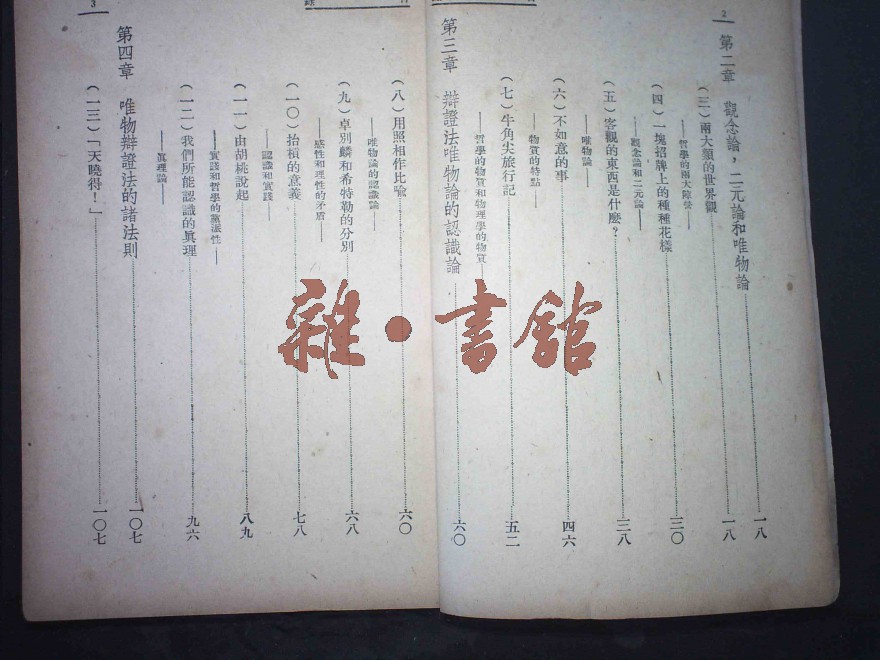 2
第二章 觀念論，二元論和唯物論 一八
(三)兩大類的世界觀 一八
——哲學的兩大陣營——
(四)一塊招牌上的種種花樣 三〇
——觀念論和二元論——
(五)客觀的東西是什麼？ 三八
——唯物論——
(六)不如意的事 四六
——物質的特點——
(七)牛角尖旅行記 五二
——哲學的物質和物理學的物質——
第三章 辯證法唯物論的認識論 六〇
(八)用照相作比喻 六〇
——唯物論的認識論——
(九)卓別麟和希特勒的分別 六八
——感性和理性的矛盾——
(一〇)抬槓的意義 七八
——認識和實踐——
(一一)由胡桃說起 八九
——實踐和哲學的黨派性——
(一二)我們所能認識的眞理 九六
——眞理論——
第四章 唯物辯證法的諸法則 一〇七
(一三)「天曉得！」 一〇七
3
雜·書館